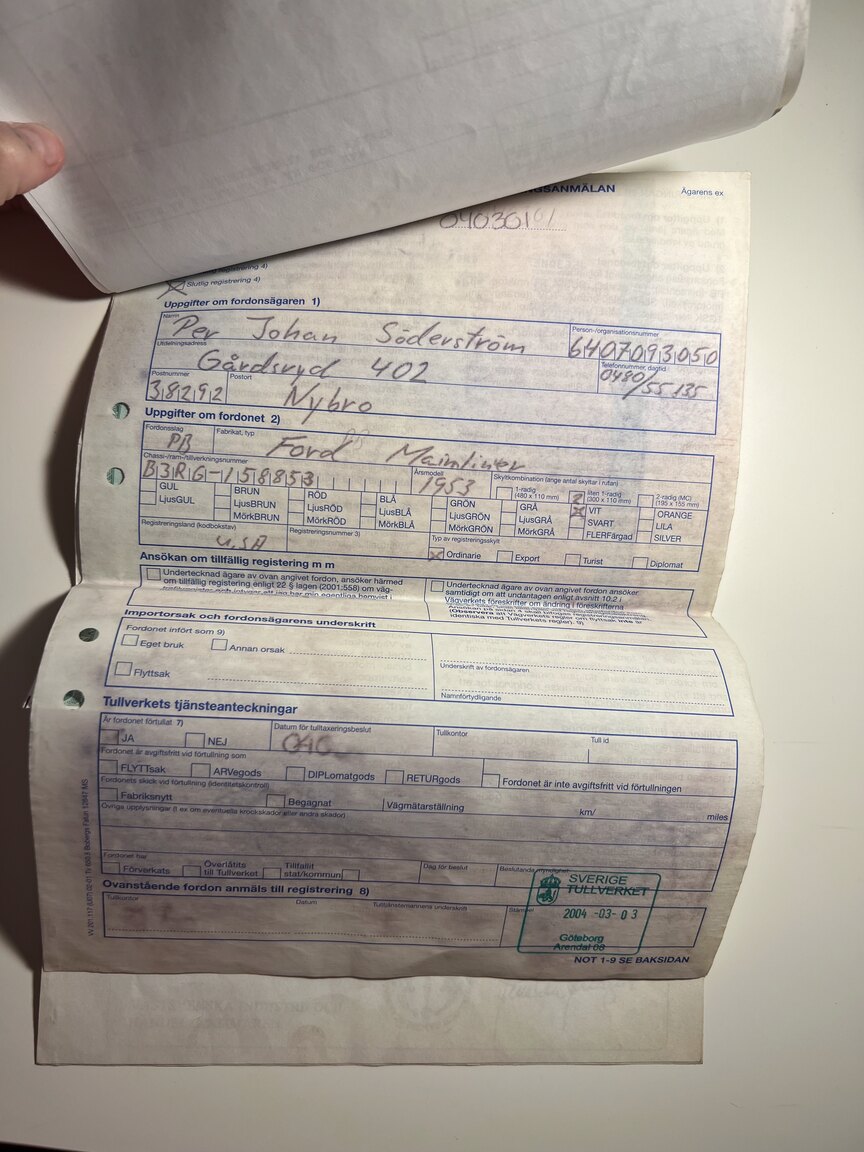 GSANMÄLAN Ägarens ex
040301
Slutlig registrering 4)
Uppgifter om fordonsägaren 1)
Namn Person-/organisationsnummer
Per Johan Söderström 6407093050
Utdelningsadress Telefonnummer, dagtid
Gårdsryd 402 0480/55135
Postnummer Postort
38292 Nybro
Uppgifter om fordonet 2)
Fordonsslag Fabrikat, typ
PB Ford Mainliner
Chassi-/ram-/tillverkningsnummer Årsmodell Skyltkombination (ange antal skyltar i rutan)
B3RG-158853 1953
1-radig (480 x 110 mm) 2 liten 1-radig (300 x 110 mm) 2-radig (MC) (195 x 155 mm)
GUL BRUN RÖD BLÅ GRÖN GRÅ VIT ORANGE
LjusGUL LjusBRUN LjusRÖD LjusBLÅ LjusGRÖN LjusGRÅ SVART LILA
MörkBRUN MörkRÖD MörkBLÅ MörkGRÖN MörkGRÅ FLERFärgad SILVER
Registreringsland (kodbokstav) Registreringsnummer 3) Typ av registreringsskylt
USA Ordinarie Export Turist Diplomat
Ansökan om tillfällig registrering m m
Undertecknad ägare av ovan angivet fordon, ansöker härmed
om tillfällig registrering enligt 22 § lagen (2001:558) om väg-
Undertecknad ägare av ovan angivet fordon ansöker
samtidigt om att undantagen enligt avsnitt 10.2 i
Vägverkets föreskrifter om ändring i föreskrifterna
identiska med Tullverkets regler). 9)
Importorsak och fordonsägarens underskrift
Fordonet infört som 9)
Eget bruk Annan orsak
Underskrift av fordonsägaren
Flyttsak
Namnförtydligande
Tullverkets tjänsteanteckningar
Är fordonet förtullat 7) Datum för tulltaxeringsbeslut Tullkontor Tull id
JA NEJ
Fordonet är avgiftsfritt vid förtullning som
FLYTTsak ARVegods DIPLomatgods RETURgods Fordonet är inte avgiftsfritt vid förtullningen
Fordonets skick vid förtullning (identitetskontroll)
Fabriksnytt Begagnat Vägmätarställning km/ miles
Övriga upplysningar (t ex om eventuella krockskador eller andra skador)
Fordonet har Dag för beslut Beslutande myndighet
Förverkats Överlåtits till Tullverket Tillfallit stat/kommun
Ovanstående fordon anmäls till registrering 8)
Tullkontor Datum Tulltjänstemannens underskrift Stämpel
SVERIGE
TULLVERKET
2004 -03- 03
Göteborg
Arendal 08
NOT 1-9 SE BAKSIDAN